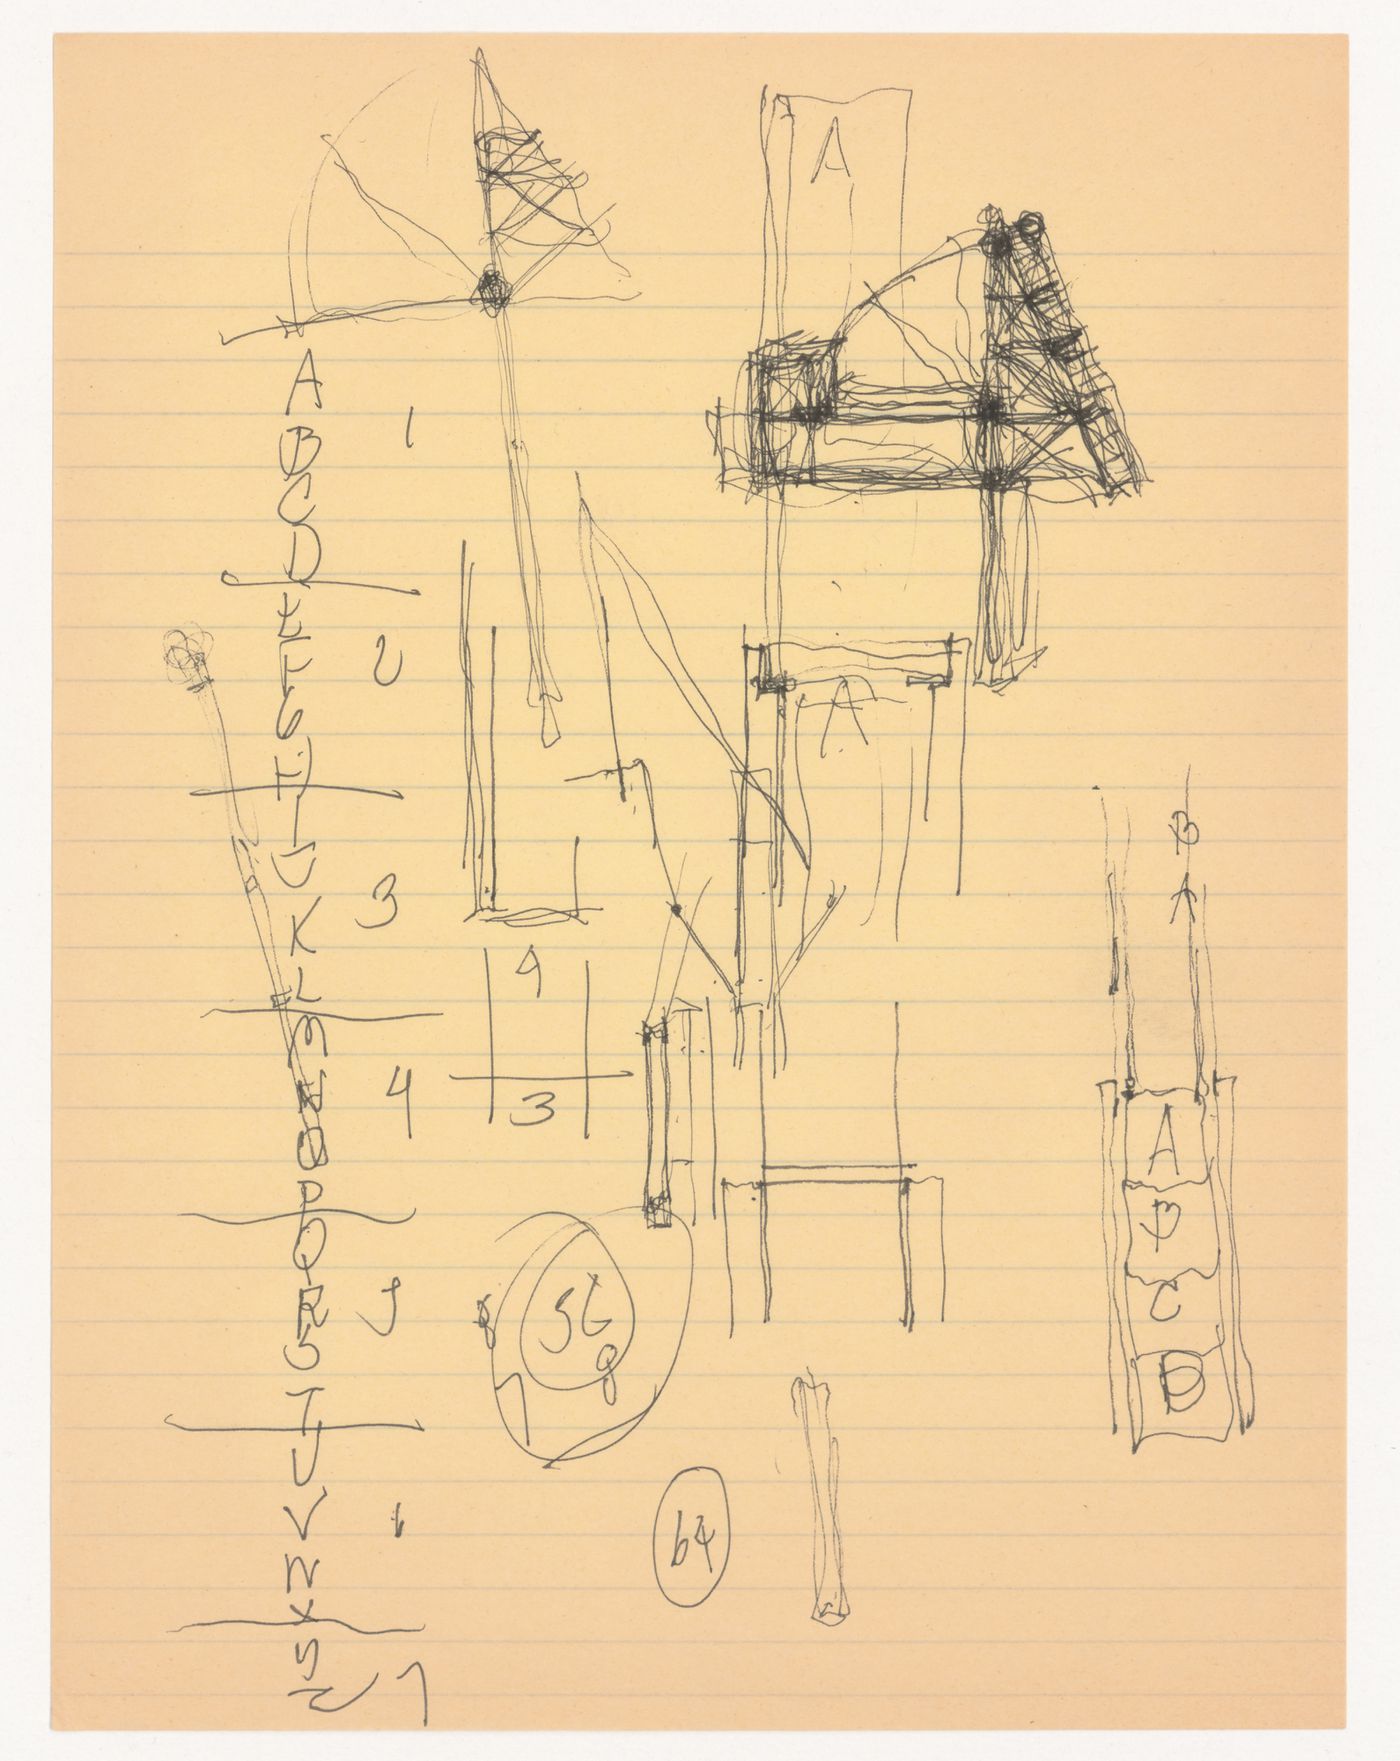 A
B
1
C
D
E
F
2
G
H
I
J
K
3
L
M
N
4
O
P
Q
R
5
S
T
U
V
6
W
X
Y
Z
7
4
3
56
8
7
64
A
A
B
A
B
C
D